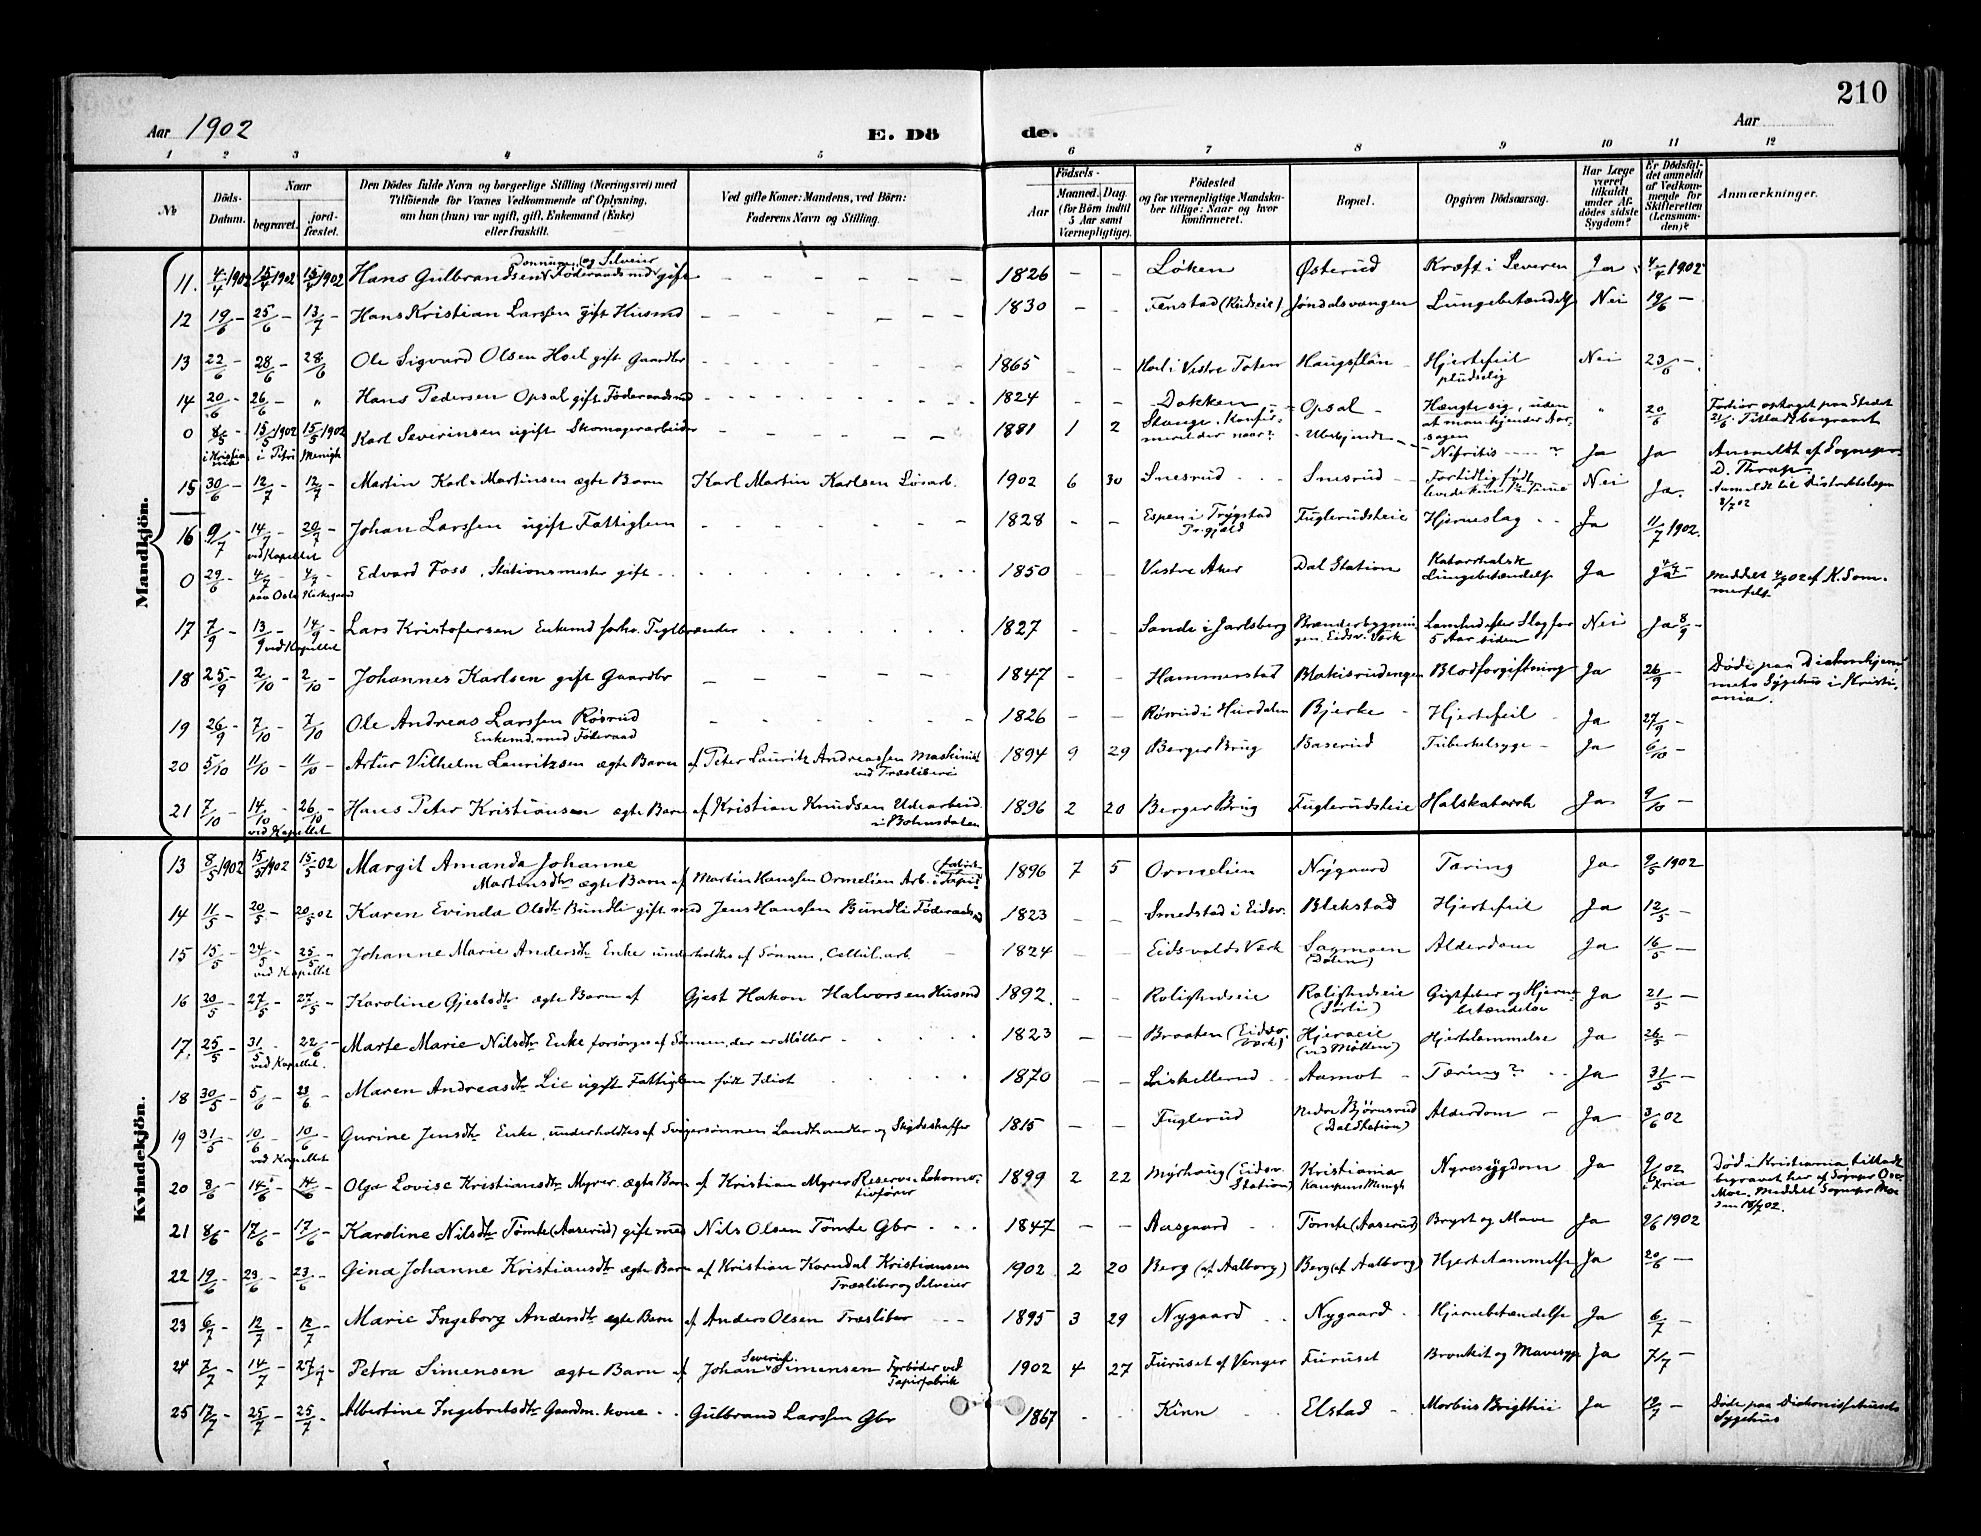 210
Aar 1902
E. Dö
de.
Aar
1 2 3 4 5 6 7 8 9 10 11 12
No
Döds-Datum.
Naar
begravet.
jord-fæstet.
Den Dödes fulde Navn og borgerlige Stilling (Næringsvei) med
Tilföiende for Voxnes Vedkommende af Oplysning,
om han (hun) var ugift, gift, Enkemand (Enke)
eller fraskilt.
Ved gifte Koner: Mandens, ved Börn:
Faderens Navn og Stilling.
Födsels-
Aar
Maaned. Dag.
(for Börn indtil 5 Aar samt Værnepligtige).
Födested
og for værnepligtige Mandskaber tillige: Naar og hvor konfirmeret.
Bopæl.
Opgiven Dödsaarsag.
Har Læge været tilkaldt under Afdödes sidste Sygdom?
Er Dödsfaldet anmeldt af Vedkommende for Skifteretten (Lensmanden)?
Anmærkninger.
Mandkjön.
11. 4/4 1902 15/4 1902 15/4 1902 Hans Gulbrandsen Föderaadsmd gift 1826 Löken Østerud Kræft i Leveren Ja 4/4 1902
12 19/6 25/6 13/7 Hans Kristian Larssen gift Husmd 1830 Fenstad Jöndalsvangen Lungebetændelse Nei 19/6
13 22/6 28/6 28/6 Ole Sigvard Olsen Hoel gift Gaardbr 1865 Hoel i Vestre Toten Haugslön Hjertefeil pludselig Nei 23/6
14 20/6 26/6 " Hans Pedersen Opsal gift Föderaadsmd 1824 Dokken Opsal Hængte sig, uden at man kjender Aarsagen " 20/6
0 8/5 i Kristiania 15/5 1902 15/5 1902 i Petri Menigh Karl Severinsen ugift Skomagerarbeider 1881 1 2 Stange. Konfirmeret der naar? Ubekjendt Nefritis Ja Ja Anmeldt af Sognepr. D. Thrap.
15 30/6 12/7 12/7 Martin Karl Martinsen ægte Barn Karl Martin Karlsen Lösarb. 1902 6 30 Snesrud Snesrud Fortidlig födt, levede kun Nei Ja. Anmeldt til Distriktslægen 8/7 02
16 9/7 14/7 20/7 ved Kapellet Johan Larssen ugift Fattiglem 1828 Espen i Trygstad Prgjæld Fuglerudseie Hjerneslag Ja 11/7 1902.
0 29/6 4/7 4/7 paa Oslo Kirkegaard Edvard Foss, Stationsmester gift 1850 Vestre Aker Dal Station Katarrhalsk Lungebetændelse Ja Ja 4/7 Meddelt 4/7 02 af K. Sommerfelt
17 7/9 13/9 14/9 ved Kapellet Lars Kristofersen Enkemd forhv. Teglbrænder 1827 Sande i Jarlsberg Brænderbygningen. Eidsv. Værk Lamhed efter Slag for 5 Aar siden Nei Ja 8/9
18 25/9 2/10 2/10 Johannes Karlsen gift Gaardbr 1847 Hammerstad Blakisrudengen Blodforgiftning Ja 26/9 Döde paa Diakonhjemmets Sygehus i Kristiania.
19 26/9 7/10 7/10 Ole Andreas Larssen Rösrud Enkemd. med Föderaad 1826 Rösrud i Hurdalen Bjerke Hjertefeil Ja 27/9
20 5/10 11/10 11/10 Artur Vilhelm Lauritzsen ægte Barn af Peter Lauritz Andreassen Maskinist ved Træsliberi 1894 9 29 Berger Brug Baserud Tuberkelsyge Ja 6/10
21 7/10 14/10 26/10 ved Kapellet Hans Peter Kristiansen ægte Barn af Kristian Knudsen Udearbeid. i Böhnsdalen 1896 2 20 Berger Brug Fuglerudseie Halskatarrh Ja 9/10
Kvindekjön.
13 8/5 1902 15/5 1902 15/5 02 Margit Amanda Johanne Martinsdtr ægte Barn af Martin Hanssen Ormelien Arb. i Papirfabrik 1896 7 5 Ormelien Nygaard Tæring Ja 9/5 1902
14 11/5 20/5 20/5 02 Karen Evinda Olsdtr Bundli gift med Jens Hanssen Bundli Föderaadsmd 1823 Smedstad i Eidsv. Blekstad Hjertefeil Ja 12/5
15 15/5 24/5 25/5 ved Kapellet Johanne Marie Andersdtr Enke underholdtes af Sönnen, Cellul. arb. 1824 Eidsvolds Værk Sagmoen (Dölen) Alderdom Ja 16/5
16 20/5 27/5 27/5 Karoline Gjestsdtr ægte Barn af Gjest Hakon Halvorsen Husmd 1892. Rolighedseie Rolighedseie (Sörli) Gigtfeber og Hjernebetændelse Ja 21/5
17. 25/5 31/5 22/6 ved Kapellet. Marte Marie Nilsdtr Enke forsörges af Sönnen, der er Möller 1823 Braaten (Eidsv. Værk) Hjeraeie (ved Möllen) Hjertelammelse Ja 26/5
18 30/5 5/6 23/6 Maren Andreasdtr Lie ugift Fattiglem födt Idiot 1870 Liskellerud Aamot Tæring? Ja 31/5
19 31/5 10/6 10/6 ved Kapellet Gurine Jensdtr Enke, underholdtes af Svigersönnen Landhandler og Skydsskaffer 1815 Fuglerud Nedre Björnsrud (Dal Station) Alderdom Ja 3/6 02
20 8/6 14/6 14/6 Olga Lovise Kristiansdtr Myrer. ægte Barn af Kristian Myrer Reserve Lokomotivförer 1899 2 22 Myrhaug (Eidsv. Station) Kristiania Kampens Menigh Nyresygdom Ja 9/6 02 i Kria Död i Kristiania, tilladt begravet her af Sognepr Ove Moe. Meddelt Sognepr Moe den 18/7 02.
21 8/6 17/6 17/6 Karoline Nilsdtr Tömte (Aaserud) gift med Nils Olsen Tömte Gbr 1847 Aasgaard Tömte (Aaserud) Bryst og Mave Ja 9/6 1902
22 19/6 23/6 23/6 Gina Johanne Kristiansdtr ægte Barn af Kristian Korndal Kristiansen Træsliber og Selveier 1902 2 20 Berg (af Aalborg) Berg (af Aalborg) Hjertelammelse Ja 20/6
23 6/7 12/7 12/7 Marie Ingeborg Andersdtr ægte Barn af Anders Olsen Træsliber 1895 3 29 Nygaard Nygaard Hjernebetændelse Ja 6/7
24 7/7 14/7 27/7 Petra Simensen ægte Barn af Johan Severin Simensen Fyrböder ved Papirfabrik 1902 4 27 Furuset af Venger Furuset Bronkit og Mavesyge Ja 7/7
25 17/7 25/7 25/7 Albertine Ingebretsdtr Gaardm. kone Gulbrand Larssen Gbr 1867 Kinn Elstad Morbus Brigthii Ja 19/7 Döde paa Diakonissehusets Sygehus